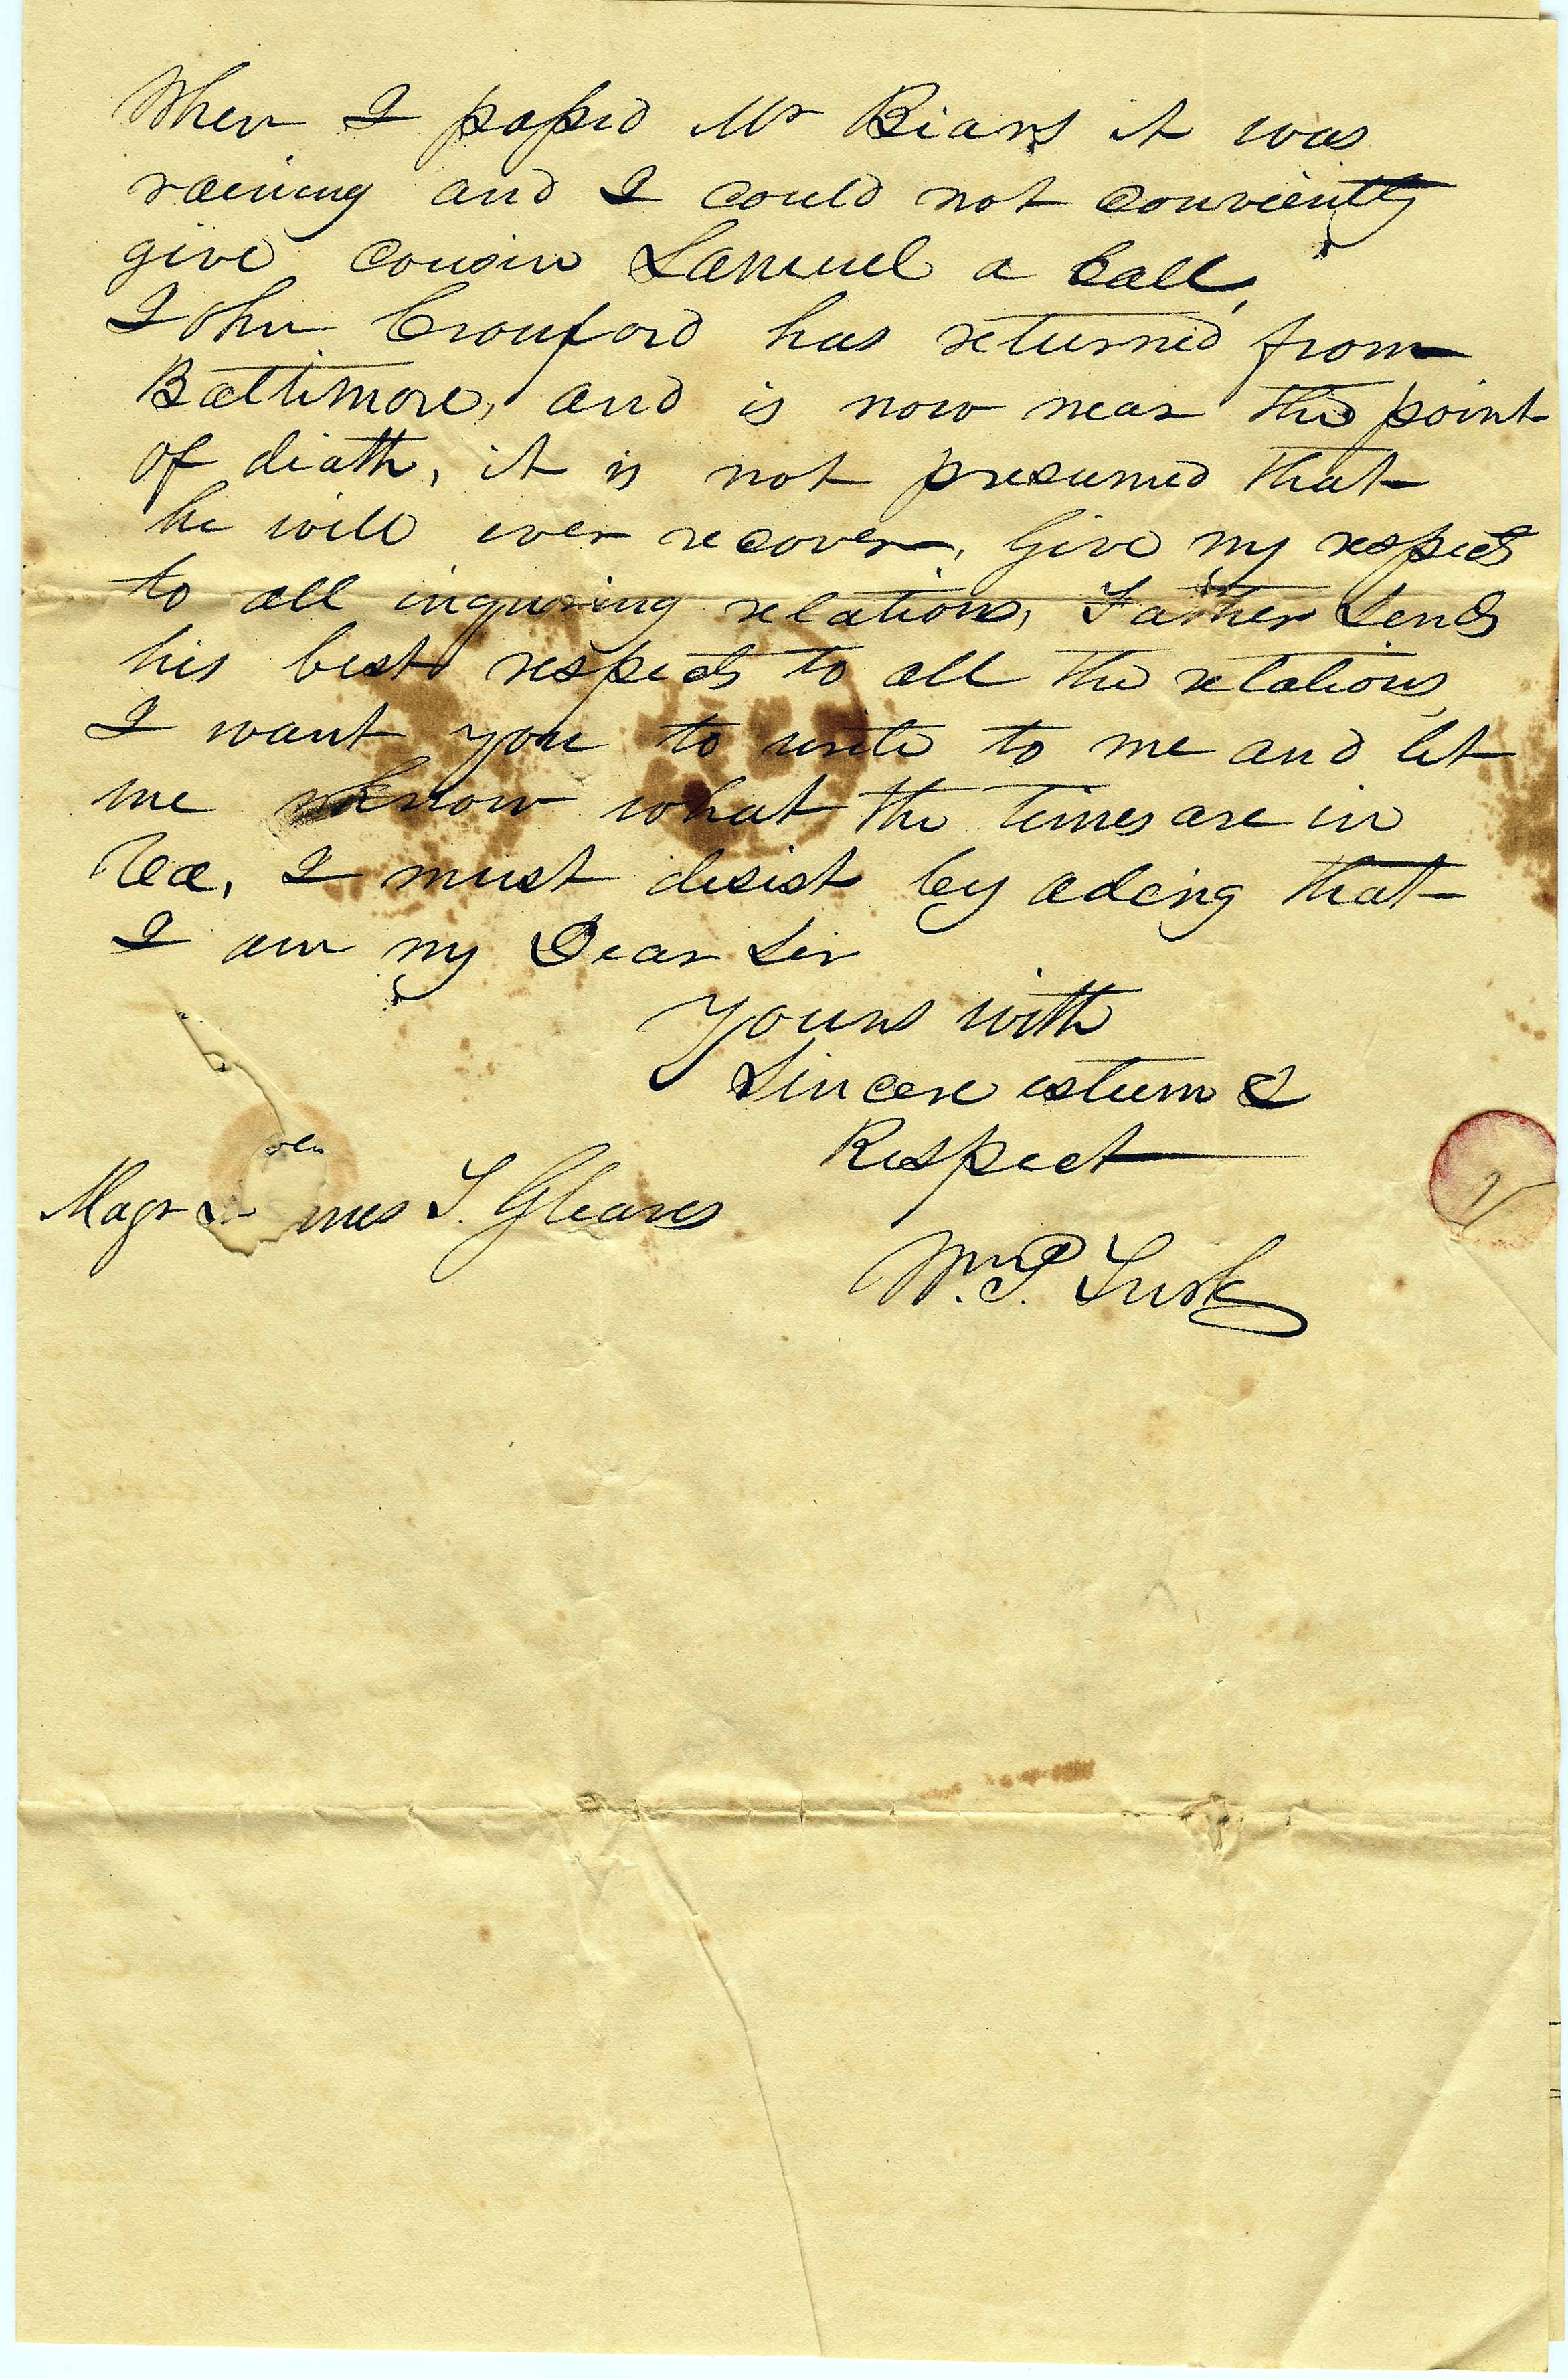 When I passed Mr Bians it was
raining and I could not conviently
give cousin Samuel a Call,
John Crouford has returned from
Baltimore, and is now near the point
of death, it is not presumed that
he will ever recover, Give my respects
to all inquiring relations, Father Sends
his best respects to all the relations,
I want you to write to me and let
me know what the times are in
I must desist by ading that
I am my Dear Sir
Yours with
Sincere esteem &
Respect
Majr mes T. Gleaves
Wm. P. Lusk